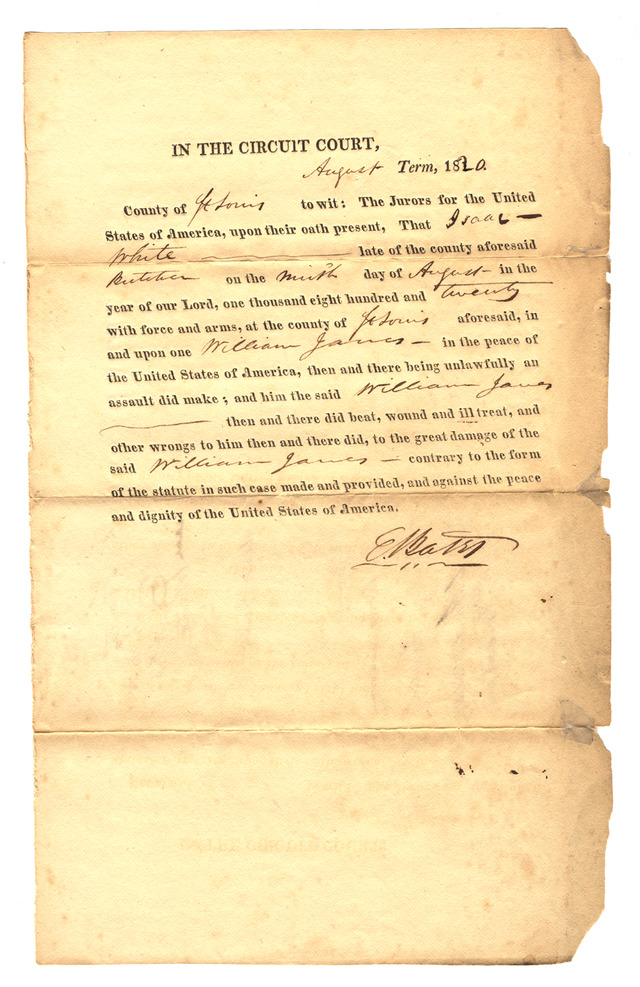 IN THE CIRCUIT COURT,
August Term, 1820.
County of St Louis to wit: The Jurors for the United
States of America, upon their oath present, That Isaac
White late of the county aforesaid
Butcher on the ninth day of August in the
year of our Lord, one thousand eight hundred and twenty
with force and arms, at the county of St Louis aforesaid, in
and upon one William James in the peace of
the United States of America, then and there being unlawfully an
assault did make; and him the said William James
then and there did beat, wound and ill treat, and
other wrongs to him then and there did, to the great damage of the
said William James contrary to the form
of the statute in such case made and provided, and against the peace
and dignity of the United States of America.
E. Bates